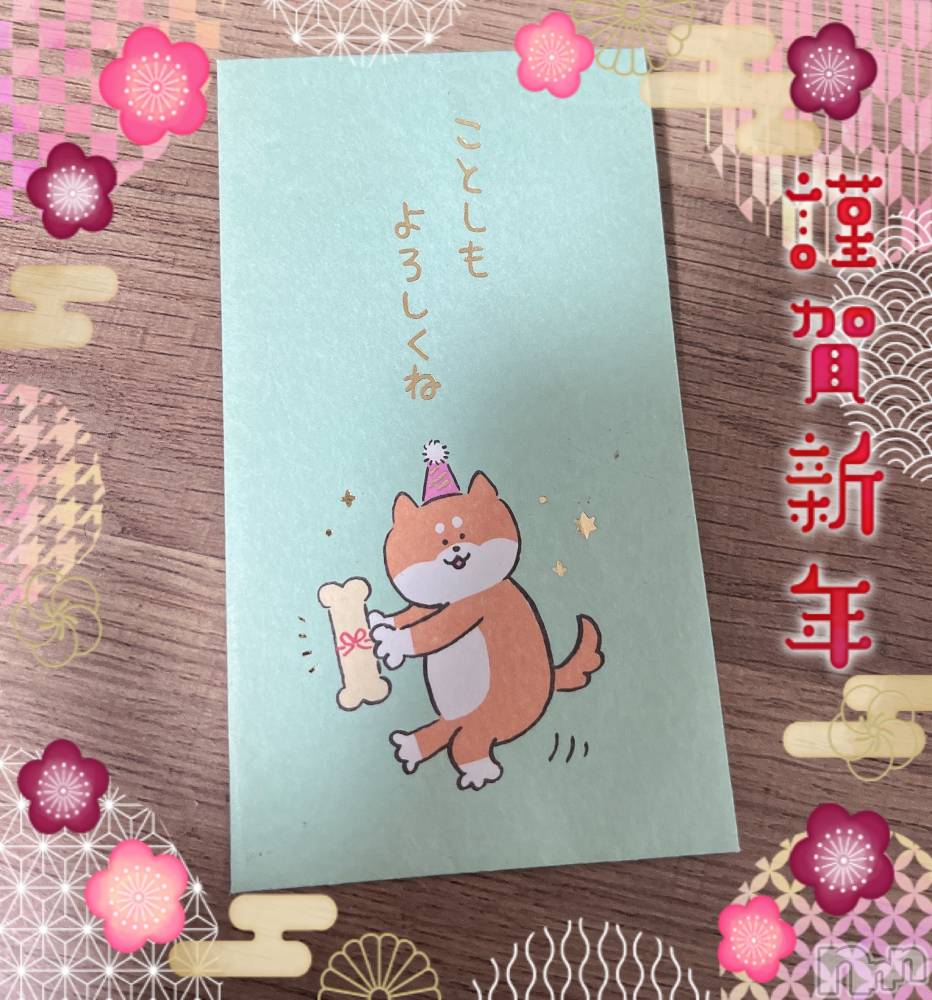 ことしも
よろしくね
謹賀新年